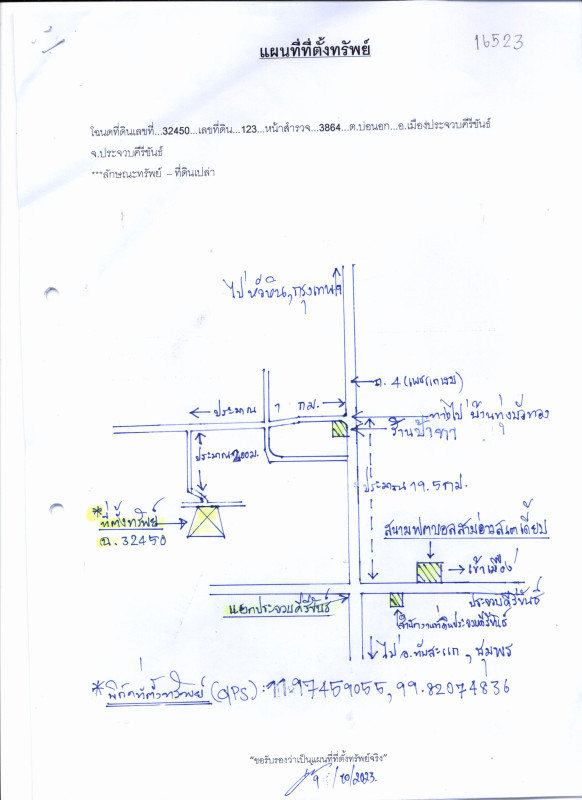 แผนที่ที่ตั้งทรัพย์
16523
โฉนดที่ดินเลขที่...32450...เลขที่ดิน...123...หน้าสำรวจ...3864...ต.บ่อนอก...อ.เมืองประจวบคีรีขันธ์
จ.ประจวบคีรีขันธ์
***ลักษณะทรัพย์ – ที่ดินเปล่า
ไปหัวหิน,กรุงเทพฯ
ถ.4 (เพชรเกษม)
ประมาณ 1 กม.
ทางไปบ้านทุ่งบัวทอง
ร้านป้าดา
ประมาณ 200 ม.
ประมาณ 19.5 กม.
*ที่ตั้งทรัพย์
ฉ. 32450
สนามฟุตบอลสามอ่าวสเตเดี้ยม
เข้าเมือง
ประจวบคีรีขันธ์
แยกประจวบคีรีขันธ์
สำนักงานที่ดินประจวบคีรีขันธ์
ไป อ.ทับสะแก, ชุมพร
*พิกัดที่ตั้งทรัพย์ (GPS) : 11.97459055, 99.82074836
"ขอรับรองว่าเป็นแผนที่ที่ตั้งทรัพย์จริง"
9/10/2023